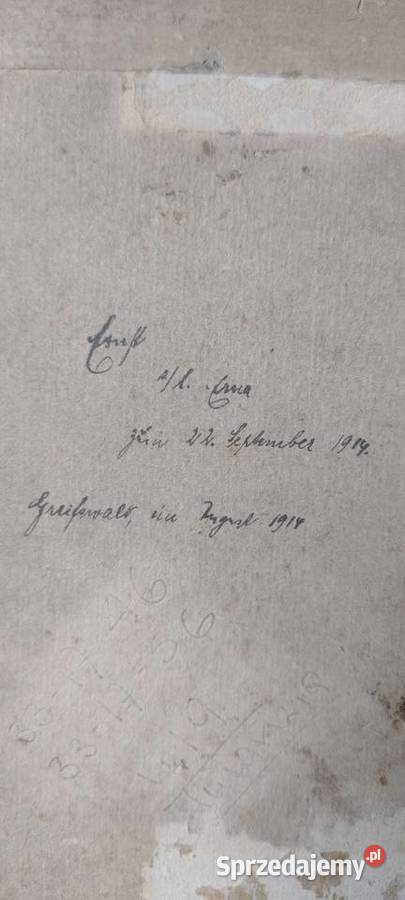 Ernst
s/l. Erna
zum 22. September 1914.
Greifswald, im August 1914
33-17-46
33-17-56
Sprzedajemy.pl